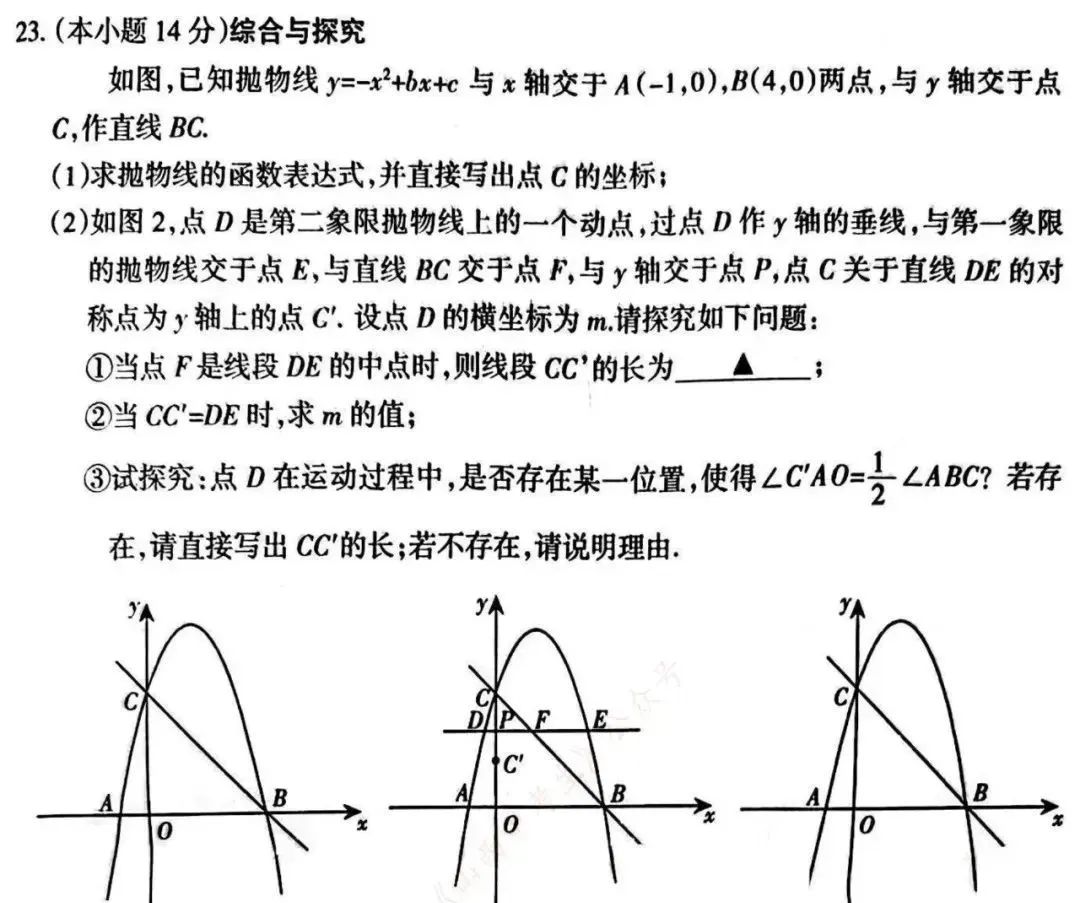 23.(本小题14分)综合与探究
如图,已知抛物线y=-x²+bx+c与x轴交于A(-1,0),B(4,0)两点,与y轴交于点
C,作直线BC.
(1)求抛物线的函数表达式,并直接写出点C的坐标;
(2)如图2,点D是第二象限抛物线上的一个动点,过点D作y轴的垂线,与第一象限
的抛物线交于点E,与直线BC交于点F,与y轴交于点P,点C关于直线DE的对
称点为y轴上的点C'.设点D的横坐标为m.请探究如下问题:
①当点F是线段DE的中点时,则线段CC’的长为 ▲ ;
②当CC'=DE时,求m的值;
③试探究:点D在运动过程中,是否存在某一位置,使得∠C'AO=1/2∠ABC?若存
在,请直接写出CC'的长;若不存在,请说明理由.
y
C
A
O
B
x
y
C
D
P
F
E
C'
A
O
B
x
y
C
A
O
B
x